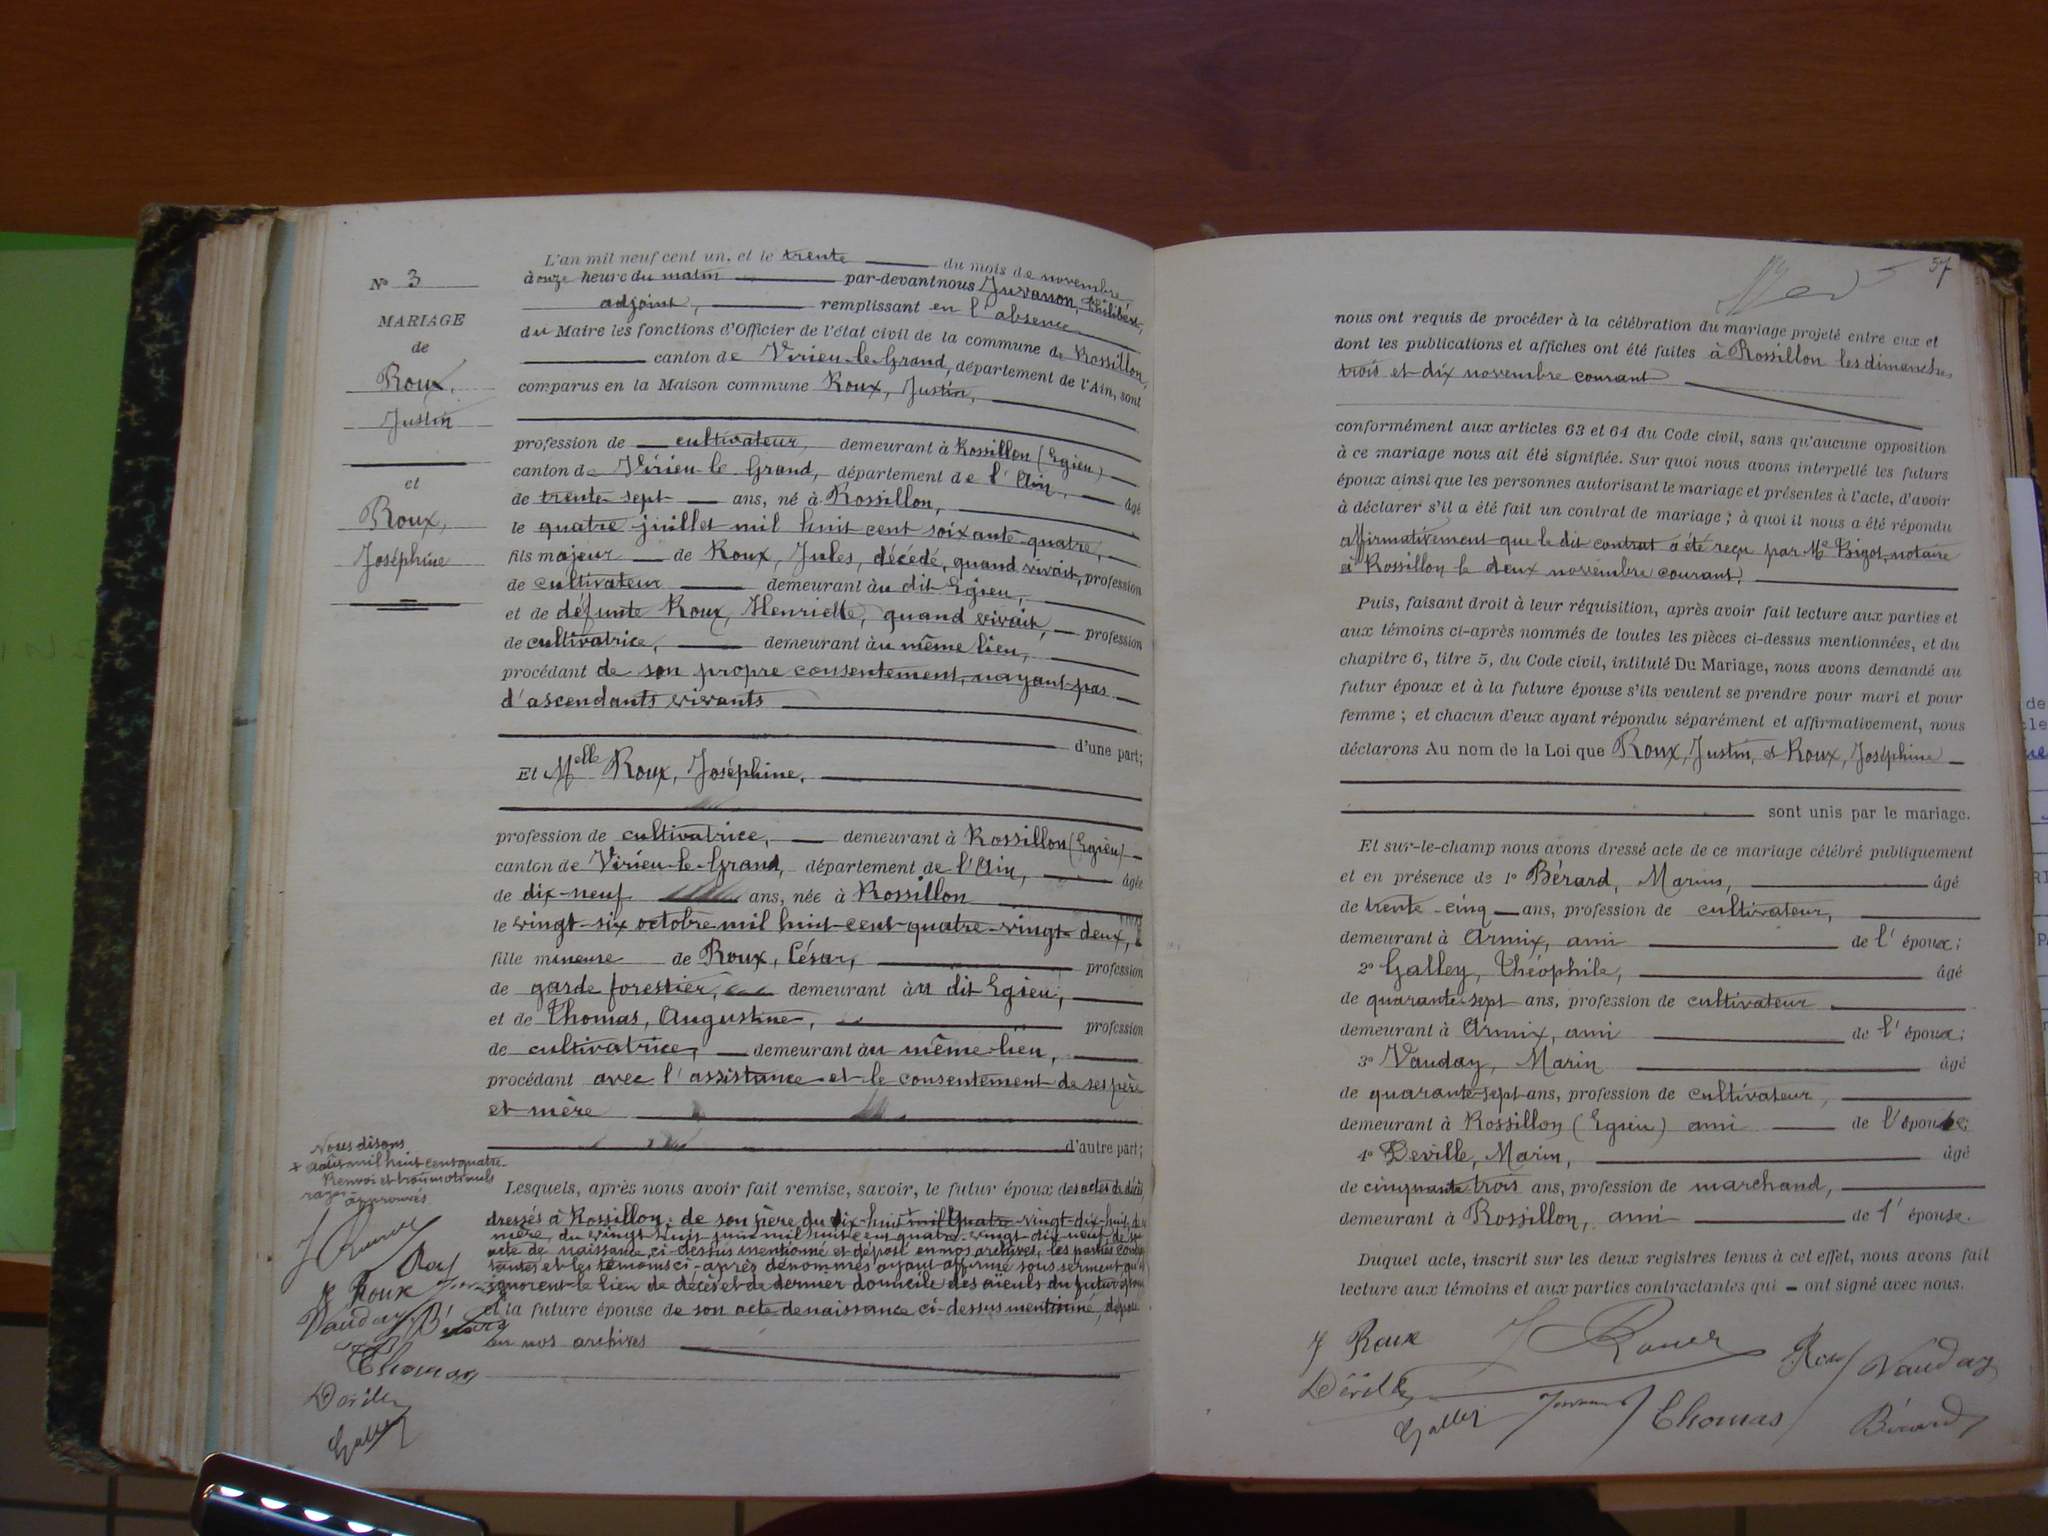 N° 3
MARIAGE
de
Roux,
Justin
et
Roux,
Joséphine
L'an mil neuf cent un, et le trente du mois de novembre
à onze heure du matin par-devant nous Juvanon, Philibert,
adjoint, remplissant en l'absence
du Maire les fonctions d'Officier de l'état civil de la commune de Rossillon,
canton de Virieu-le-Grand, département de l'Ain, sont
comparus en la Maison commune Roux, Justin,
profession de cultivateur, demeurant à Rossillon (Egieu)
canton de Virieu-le-Grand, département de l'Ain, âgé
de trente-sept ans, né à Rossillon,
le quatre juillet mil huit cent soixante-quatre,
fils majeur de Roux, Jules, décédé, quand vivait, profession
de cultivateur demeurant àu dit Egieu,
et de défunte Roux, Henriette, quand vivait, profession
de cultivatrice, demeurant àu même lieu,
procédant de son propre consentement, n'ayant pas
d'ascendants vivants
d'une part;
Et Melle Roux, Joséphine,
profession de cultivatrice, demeurant à Rossillon (Egieu)
canton de Virieu-le-Grand, département de l'Ain, âgée
de dix-neuf ans, née à Rossillon
le vingt-six octobre mil huit-cent-quatre-vingt-deux,
fille mineure de Roux, César, profession
de garde forestier, demeurant àu dit Egieu,
et de Thomas, Augustine, profession
de cultivatrice, demeurant àu même lieu,
procédant avec l'assistance et le consentement de ses père
et mère
d'autre part;
Nous disons
+ août mil huit cent quatre-
Renvoi et trois mots nuls
rayés approuvés
Lesquels, après nous avoir fait remise, savoir, le futur époux des actes de décès
dressés à Rossillon, de son père du dix-huit mil quatre-vingt-dix-huit, de sa
mère, du vingt-huit juin mil huit cent quatre-vingt-dix-neuf, de son
acte de naissance, ci-dessus mentionné et déposé en nos archives, les parties contrac
tantes et les témoins ci-après dénommés ayant affirmé sous serment qu'ils
ignorent le lieu de décès et de dernier domicile des aïeuls du futur époux
et la future épouse de son acte de naissance ci-dessus mentionné, déposé
en nos archives
J Roux
Vauday Bérard
Thomas
Deville
Galley
37
nous ont requis de procéder à la célébration du mariage projeté entre eux et
dont les publications et affiches ont été faites à Rossillon les dimanches
trois et dix novembre courant
conformément aux articles 63 et 64 du Code civil, sans qu'aucune opposition
à ce mariage nous ait été signifiée. Sur quoi nous avons interpellé les futurs
époux ainsi que les personnes autorisant le mariage et présentes à l'acte, d'avoir
à déclarer s'il a été fait un contrat de mariage; à quoi il nous a été répondu
affirmativement que le dit contrat a été reçu par Me Bizot, notaire
à Rossillon le deux novembre courant.
Puis, faisant droit à leur réquisition, après avoir fait lecture aux parties et
aux témoins ci-après nommés de toutes les pièces ci-dessus mentionnées, et du
chapitre 6, titre 5, du Code civil, intitulé Du Mariage, nous avons demandé au
futur époux et à la future épouse s'ils veulent se prendre pour mari et pour
femme; et chacun d'eux ayant répondu séparément et affirmativement, nous
déclarons Au nom de la Loi que Roux, Justin, et Roux, Joséphine
sont unis par le mariage.
Et sur-le-champ nous avons dressé acte de ce mariage célébré publiquement
et en présence de 1° Bérard, Marius, âgé
de trente-cinq ans, profession de cultivateur,
demeurant à Armix, ami de l'époux;
2° Galley, Théophile, âgé
de quarante-sept ans, profession de cultivateur
demeurant à Armix, ami de l'époux;
3° Vauday, Marin âgé
de quarante-sept ans, profession de cultivateur,
demeurant à Rossillon (Egieu) ami de l'épouse;
4° Deville, Marin, âgé
de cinquante trois ans, profession de marchand,
demeurant à Rossillon, ami de l'épouse.
Duquel acte, inscrit sur les deux registres tenus à cet effet, nous avons fait
lecture aux témoins et aux parties contractantes qui ont signé avec nous.
J Roux J Roux Roux Vauday
Deville Galley Thomas Bérard